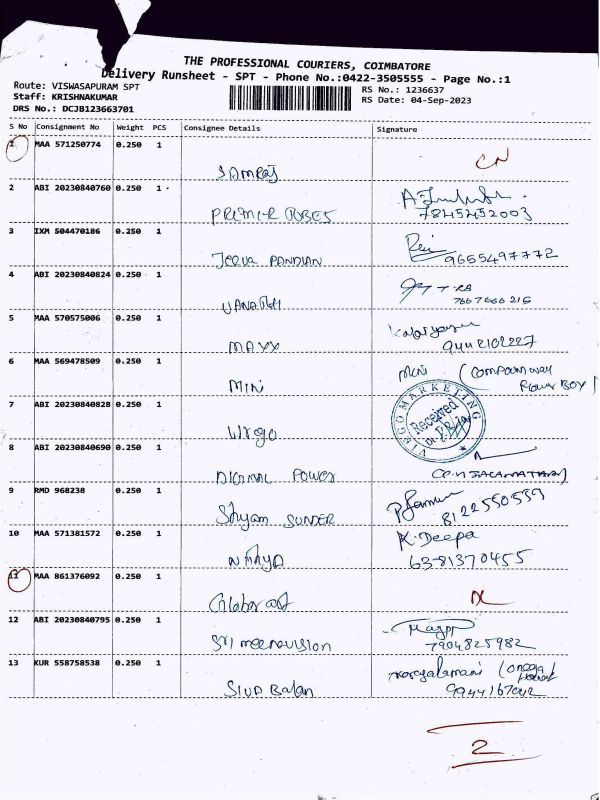 THE PROFESSIONAL COURIERS, COIMBATORE
Delivery Runsheet - SPT - Phone No.:0422-3505555 - Page No.:1
Route: VISWASAPURAM SPT
Staff: KRISHNAKUMAR
DRS No.: DCJB123663701
RS No.: 1236637
RS Date: 04-Sep-2023
S No Consignment No Weight PCS Consignee Details Signature
1 MAA 571250774 0.250 1
CN
2 ABI 20230840760 0.250 1
PREMIER TUBES
7845452003
3 IXM 504470186 0.250 1
JEEVA PANDIAN
9655497772
4 ABI 20230840824 0.250 1
7667666216
5 MAA 570575006 0.250 1
MAXX
9442102227
6 MAA 569478509 0.250 1
MINI
Mini (Company
BOY)
7 ABI 20230840828 0.250 1
Virgo
VINGO MARKETING
Received
8 ABI 20230840690 0.250 1
DIGITAL POWER
9 RMD 968238 0.250 1
Shyam SUNDER
8122550559
10 MAA 571381572 0.250 1
NITHYA
K. Deepa
6381370455
11 MAA 861376092 0.250 1
12 ABI 20230840795 0.250 1
Sri meenavision
7904825982
13 KUR 558758538 0.250 1
SIVA Balan
9944167042
2